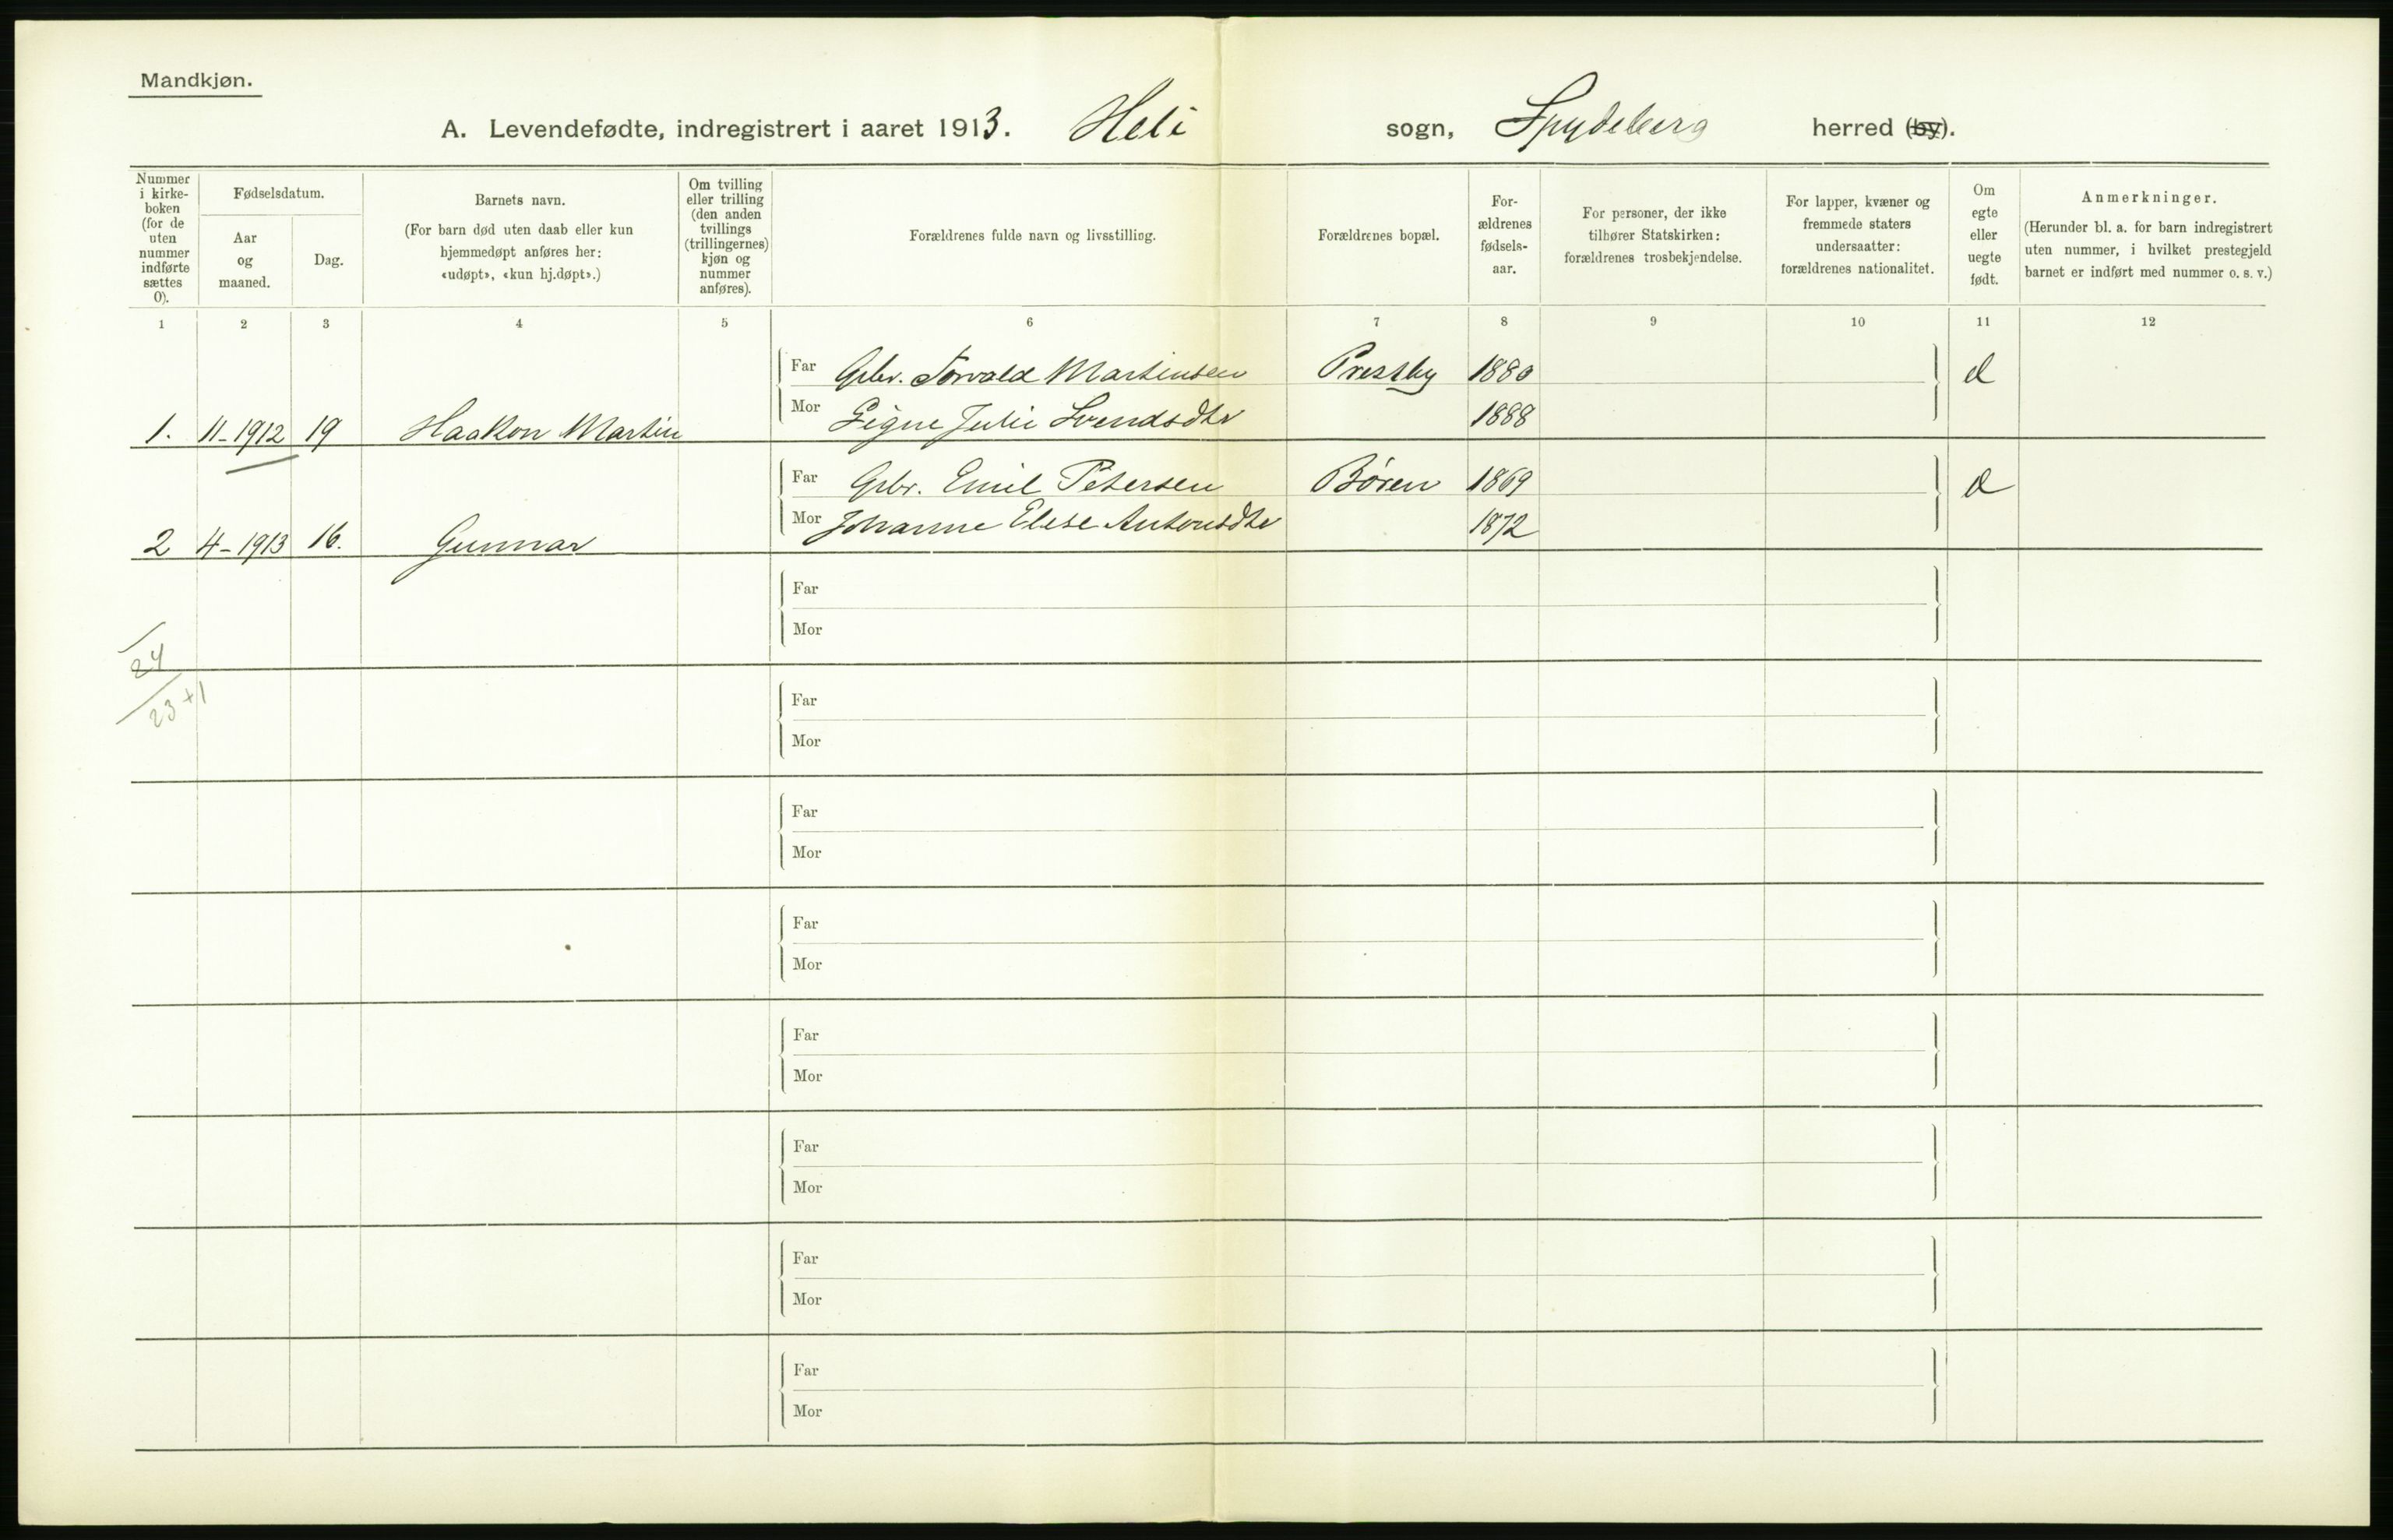 Mandkjøn.
A. Levendefødte, indregistrert i aaret 1913. Heli sogn, Spydeberg herred (by).
Nummer i kirke- boken (for de uten nummer indførte sættes 0).
Fødselsdatum.
Aar og maaned.
Dag.
Barnets navn.
(For barn død uten daab eller kun hjemmedøpt anføres her: «udøpt», «kun hj.døpt».)
Om tvilling eller trilling (den anden tvillings (trillingernes) kjøn og nummer anføres).
Forældrenes fulde navn og livsstilling.
Forældrenes bopæl.
For- ældrenes fødsels- aar.
For personer, der ikke tilhører Statskirken: forældrenes trosbekjendelse.
For lapper, kvæner og fremmede staters undersaatter: forældrenes nationalitet.
Om egte eller uegte født.
Anmerkninger.
(Herunder bl. a. for barn indregistrert uten nummer, i hvilket prestegjeld barnet er indført med nummer o. s. v.)
1 2 3 4 5 6 7 8 9 10 11 12
Far Gbr. Torvald Martinsen Prestby 1880
Mor Signe Julie Svendsdtr 1888
1. 11-1912 19 Haakon Martin
Far Gbr. Emil Petersen Børen 1869
Mor Johanne Elise Antonsdtr 1872
2 4-1913 16. Gunnar
Far
Mor
24
23+1
Far
Mor
Far
Mor
Far
Mor
Far
Mor
Far
Mor
Far
Mor
Far
Mor